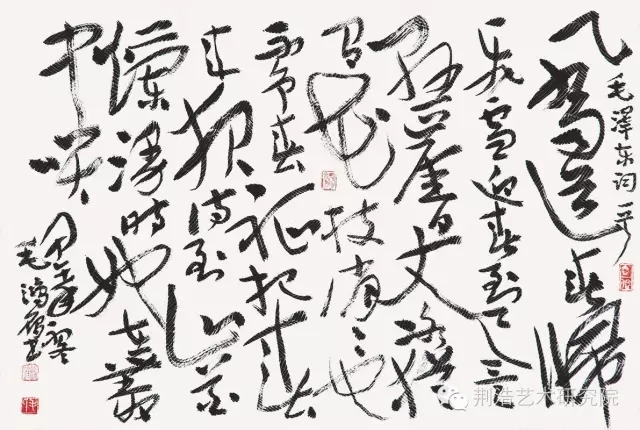 风雨送春归
毛澤东词一首
飞雪迎春到已是
悬崖百丈冰犹
有花枝俏俏也
不争春只把春
来报待到山花
烂漫时她在丛
中笑
甲午年
毛鸿
荆浩艺术研究院